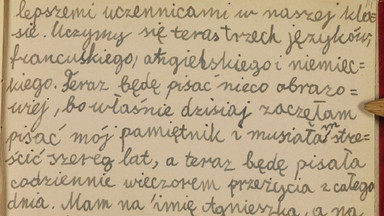 lepszemi uczennicami w naszej kla-
sie. Uczymy się teras trzech języków,
francuskiego, angielskiego i niemiec-
kiego. Teraz będę pisać nieco obrazo-
wiej, bo właśnie dzisiaj zaczęłam
pisać mój pamiętnik i musiałam stre-
ścić szereg lat, a teraz będę pisała
codziennie wieczorem przeżycia z całego
dnia. Mam na imię Agnieszka, a na